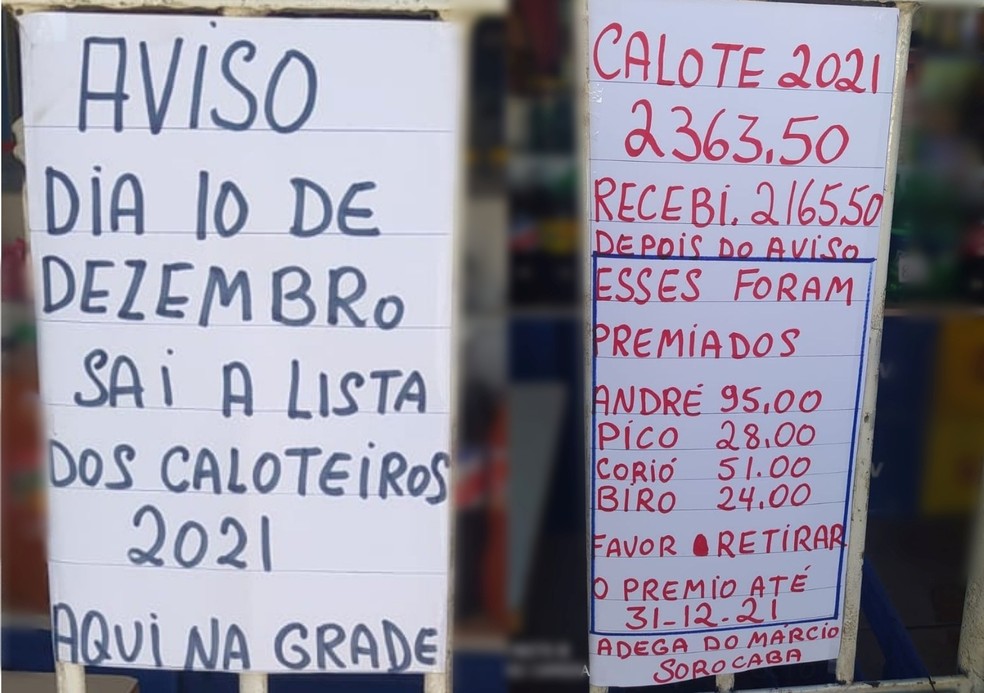 AVISO
DIA 10 DE
DEZEMBRO
SAI A LISTA
DOS CALOTEIROS
2021
AQUI NA GRADE
CALOTE 2021
2363.50
RECEBI. 2165.50
DEPOIS DO AVISO
ESSES FORAM
PREMIADOS
ANDRÉ 95.00
PÍCO 28.00
CORIÓ 51.00
BIRO 24.00
FAVOR RETIRAR
O PREMIO ATÉ
31-12-21
ADEGA DO MÁRCIO
SOROCABA